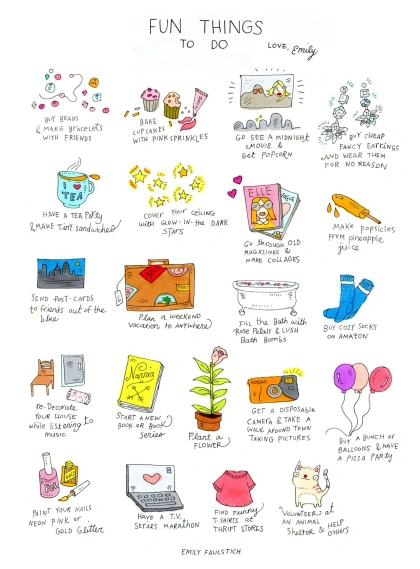 FUN THINGS
TO DO
LOVE, Emily
BUY BEADS
& MAKE BRACELETS
WITH FRIENDS
BAKE
CUPCAKES
WITH PINK SPRINKLES
GO SEE A MIDNIGHT
MOVIE &
GET POPCORN
BUY CHEAP
FANCY EARRINGS
AND WEAR THEM
FOR NO REASON
I ♥
TEA
HAVE A TEA PARTY
& MAKE TINY SANDWICHES
COVER YOUR CEILING
WITH GLOW-IN-the DARK
STARS
ELLE
VOGUE
Go through OLD
MAGAZINES &
MAKE COLLAGES
MAKE
POPSICLES
FROM PINEAPPLE
JUICE
SEND POST-CARDS
to FRIENDS OUT OF the
BLUE
Plan a WEEKEND
VACATION to ANYWHERE
FILL the BATH WITH
ROSE PETALS & LUSH
BATH BOMBS
BUY COZY SOCKS
ON AMAZON
re-DECORATE
YOUR HOUSE
while listening to
MUSIC
Narnia
START A NEW
BOOK OR BOOK
SERIES
Plant a
FLOWER
KODAK
GET A DISPOSABLE
CAMERA & TAKE A
WALK AROUND TOWN
TAKING PICTURES
BUY A BUNCH OF
BALLOONS & HAVE
A PIZZA PARTY
PAINT YOUR NAILS
NEON PINK or
GOLD Glitter
HAVE A T.V.
SERIES MARATHON
FIND FUNNY
T-SHIRTS at
THRIFT STORES
VOLUNTEER at
AN ANIMAL
Shelter & HELP
OTHERS
EMILY FAULSTICH